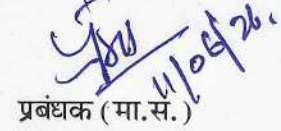 11/06/26.
प्रबंधक (मा.सं.)